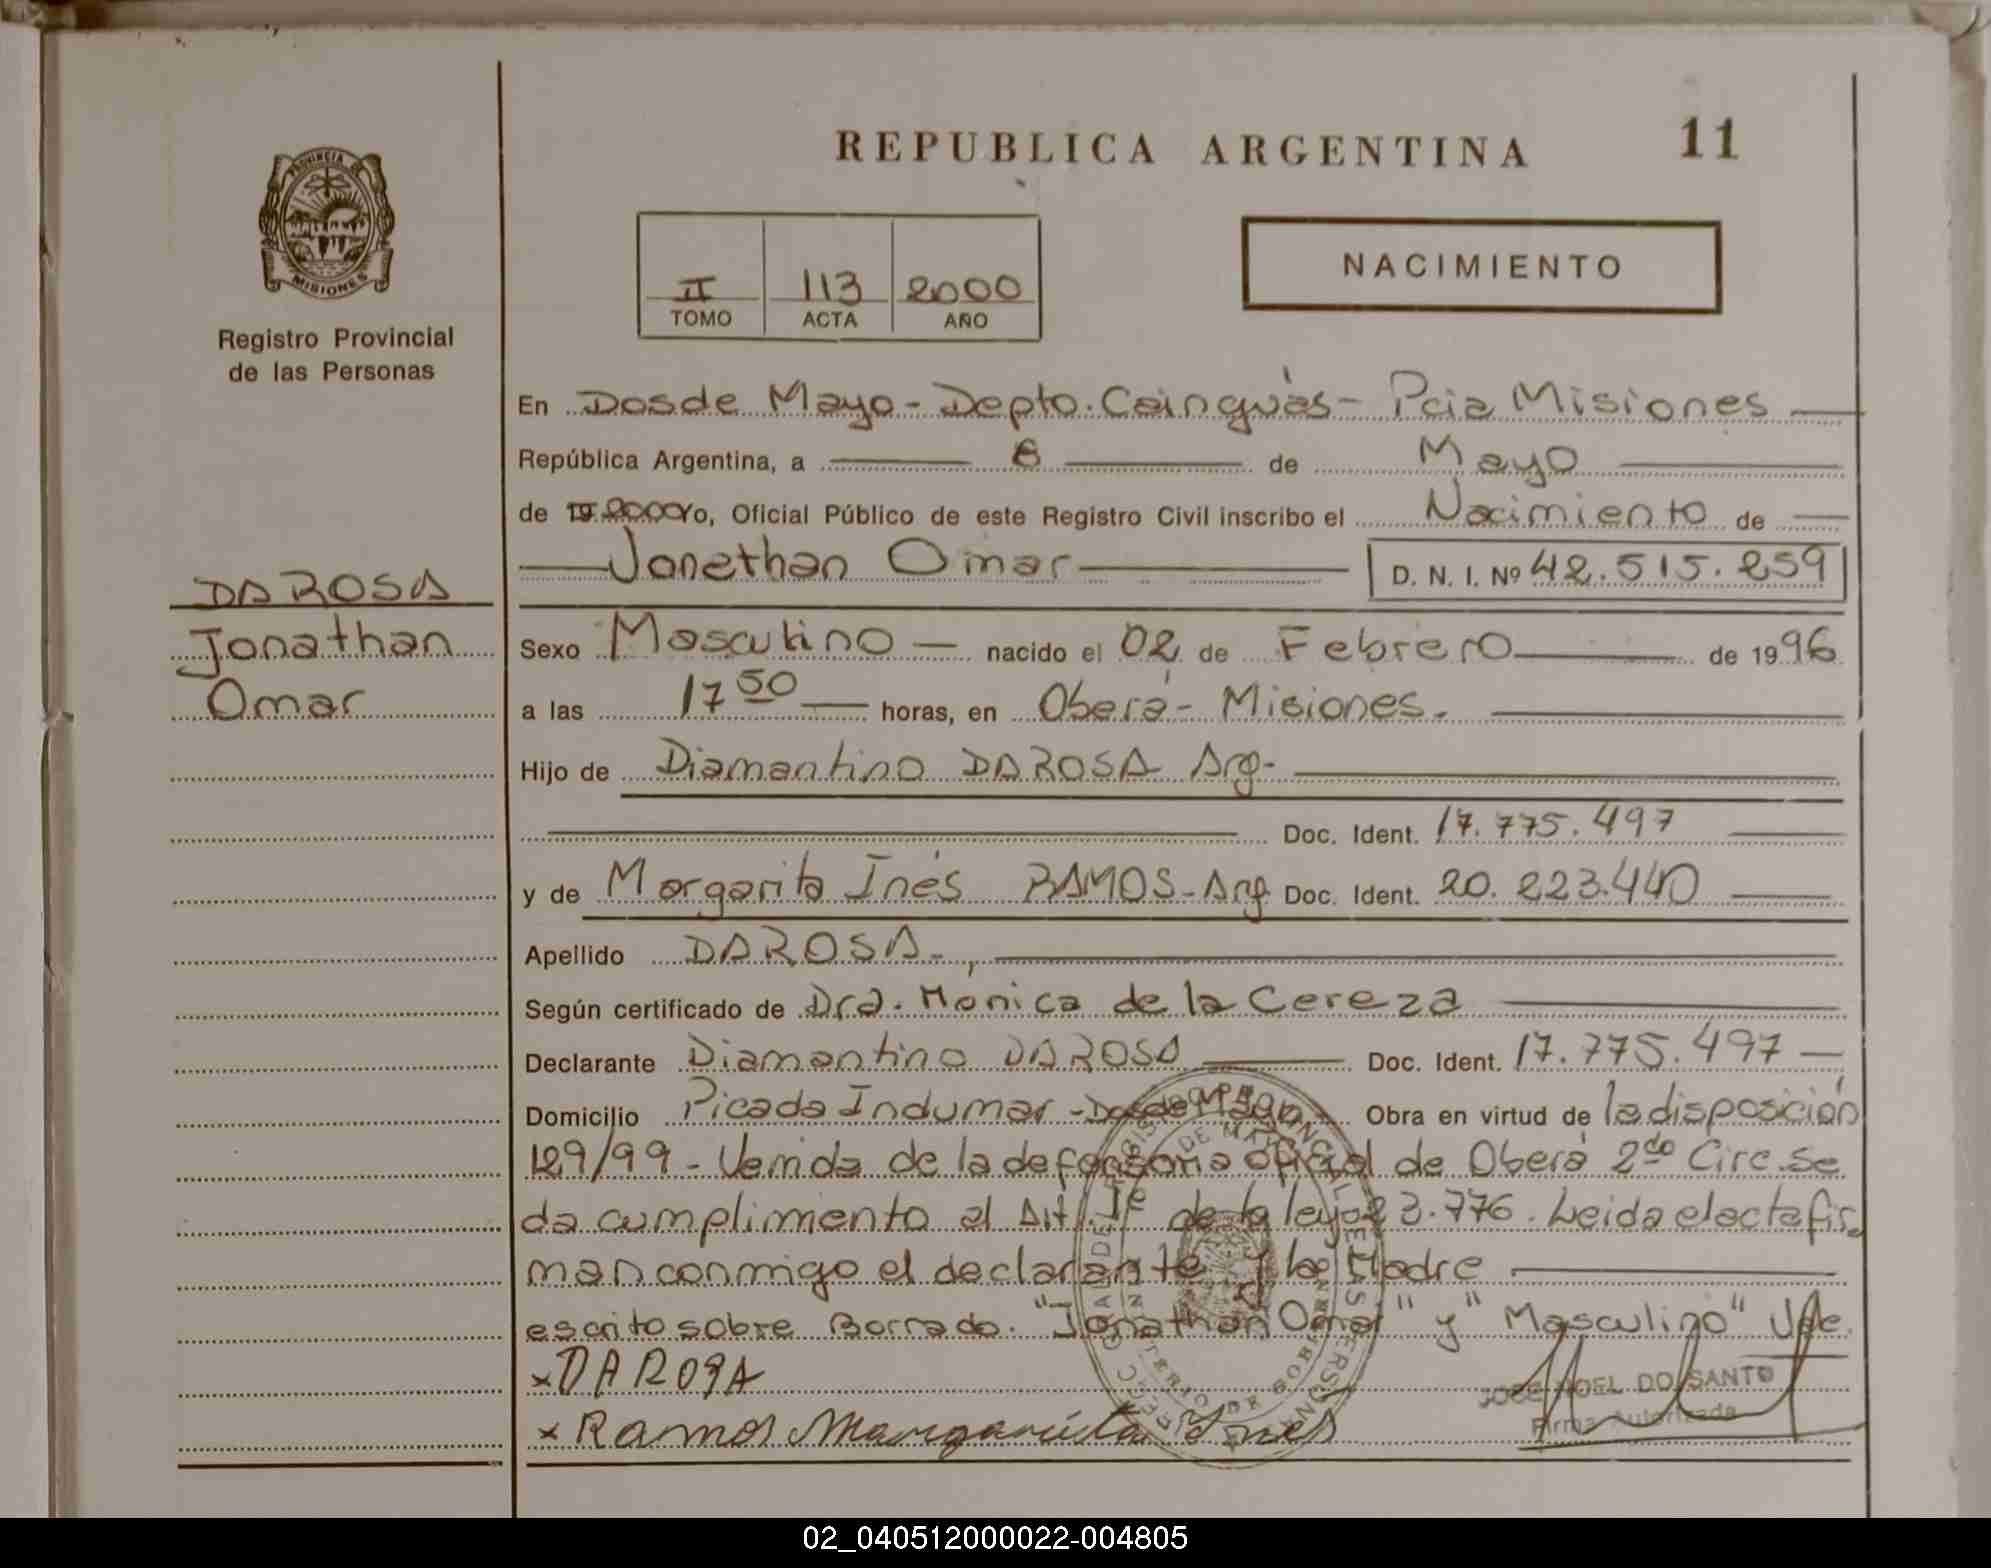 REPUBLICA ARGENTINA 11
PROVINCIA DE
MISIONES
Registro Provincial
de las Personas
NACIMIENTO
II 113 2000
TOMO ACTA AÑO
En Dos de Mayo - Depto. Cainguás - Pcia Misiones
República Argentina, a 8 de Mayo
de 19 2000 Yo, Oficial Público de este Registro Civil inscribo el Nacimiento de
Jonathan Omar D. N. I. Nº 42.515.259
DA ROSA
Jonathan
Omar
Sexo Masculino nacido el 02 de Febrero de 1996
a las 17 50 horas, en Oberá - Misiones.
Hijo de Diamantino DA ROSA Arg-
Doc. Ident. 17.775.497
y de Margarita Inés RAMOS - Arg Doc. Ident. 20.223.440
Apellido DA ROSA-,
Según certificado de Dra. Mónica de la Cereza
Declarante Diamantino DA ROSA Doc. Ident. 17.775.497
Domicilio Picada Indumar - Dos de Mayo Obra en virtud de la disposición
129/99 - Venida de la defensoria oficial de Oberá 2do Circ. Se
da cumplimento al Art. 1º de la ley 23.776. Leida el acta fir
man conmigo el declarante y la Madre
escrito sobre Borrado. "Jonathan Omar" y "Masculino" Vale.
x DA ROSA
x Ramos Margarita Ines
JOSE NOEL DO SANTO
Firma Autorizada
02_040512000022-004805